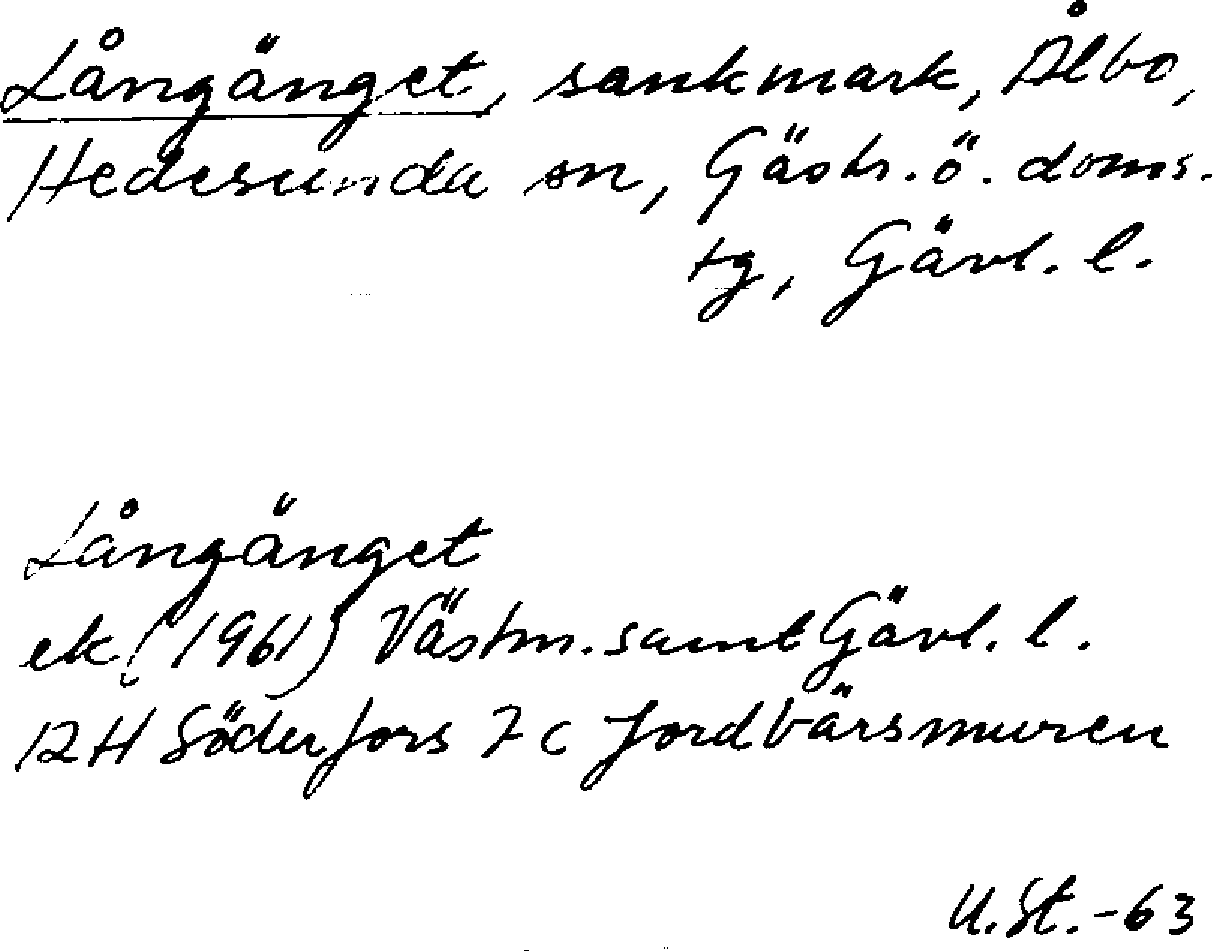 Långänget, sankmark, Ålbo,
Hedesunda sn, Gästr. ö. doms.
tg, Gävl. l.
Långänget
ek (1961) Västm. samt Gävl. l.
12 H Söderfors 7 c Jordbärsmuren
U. St. -63